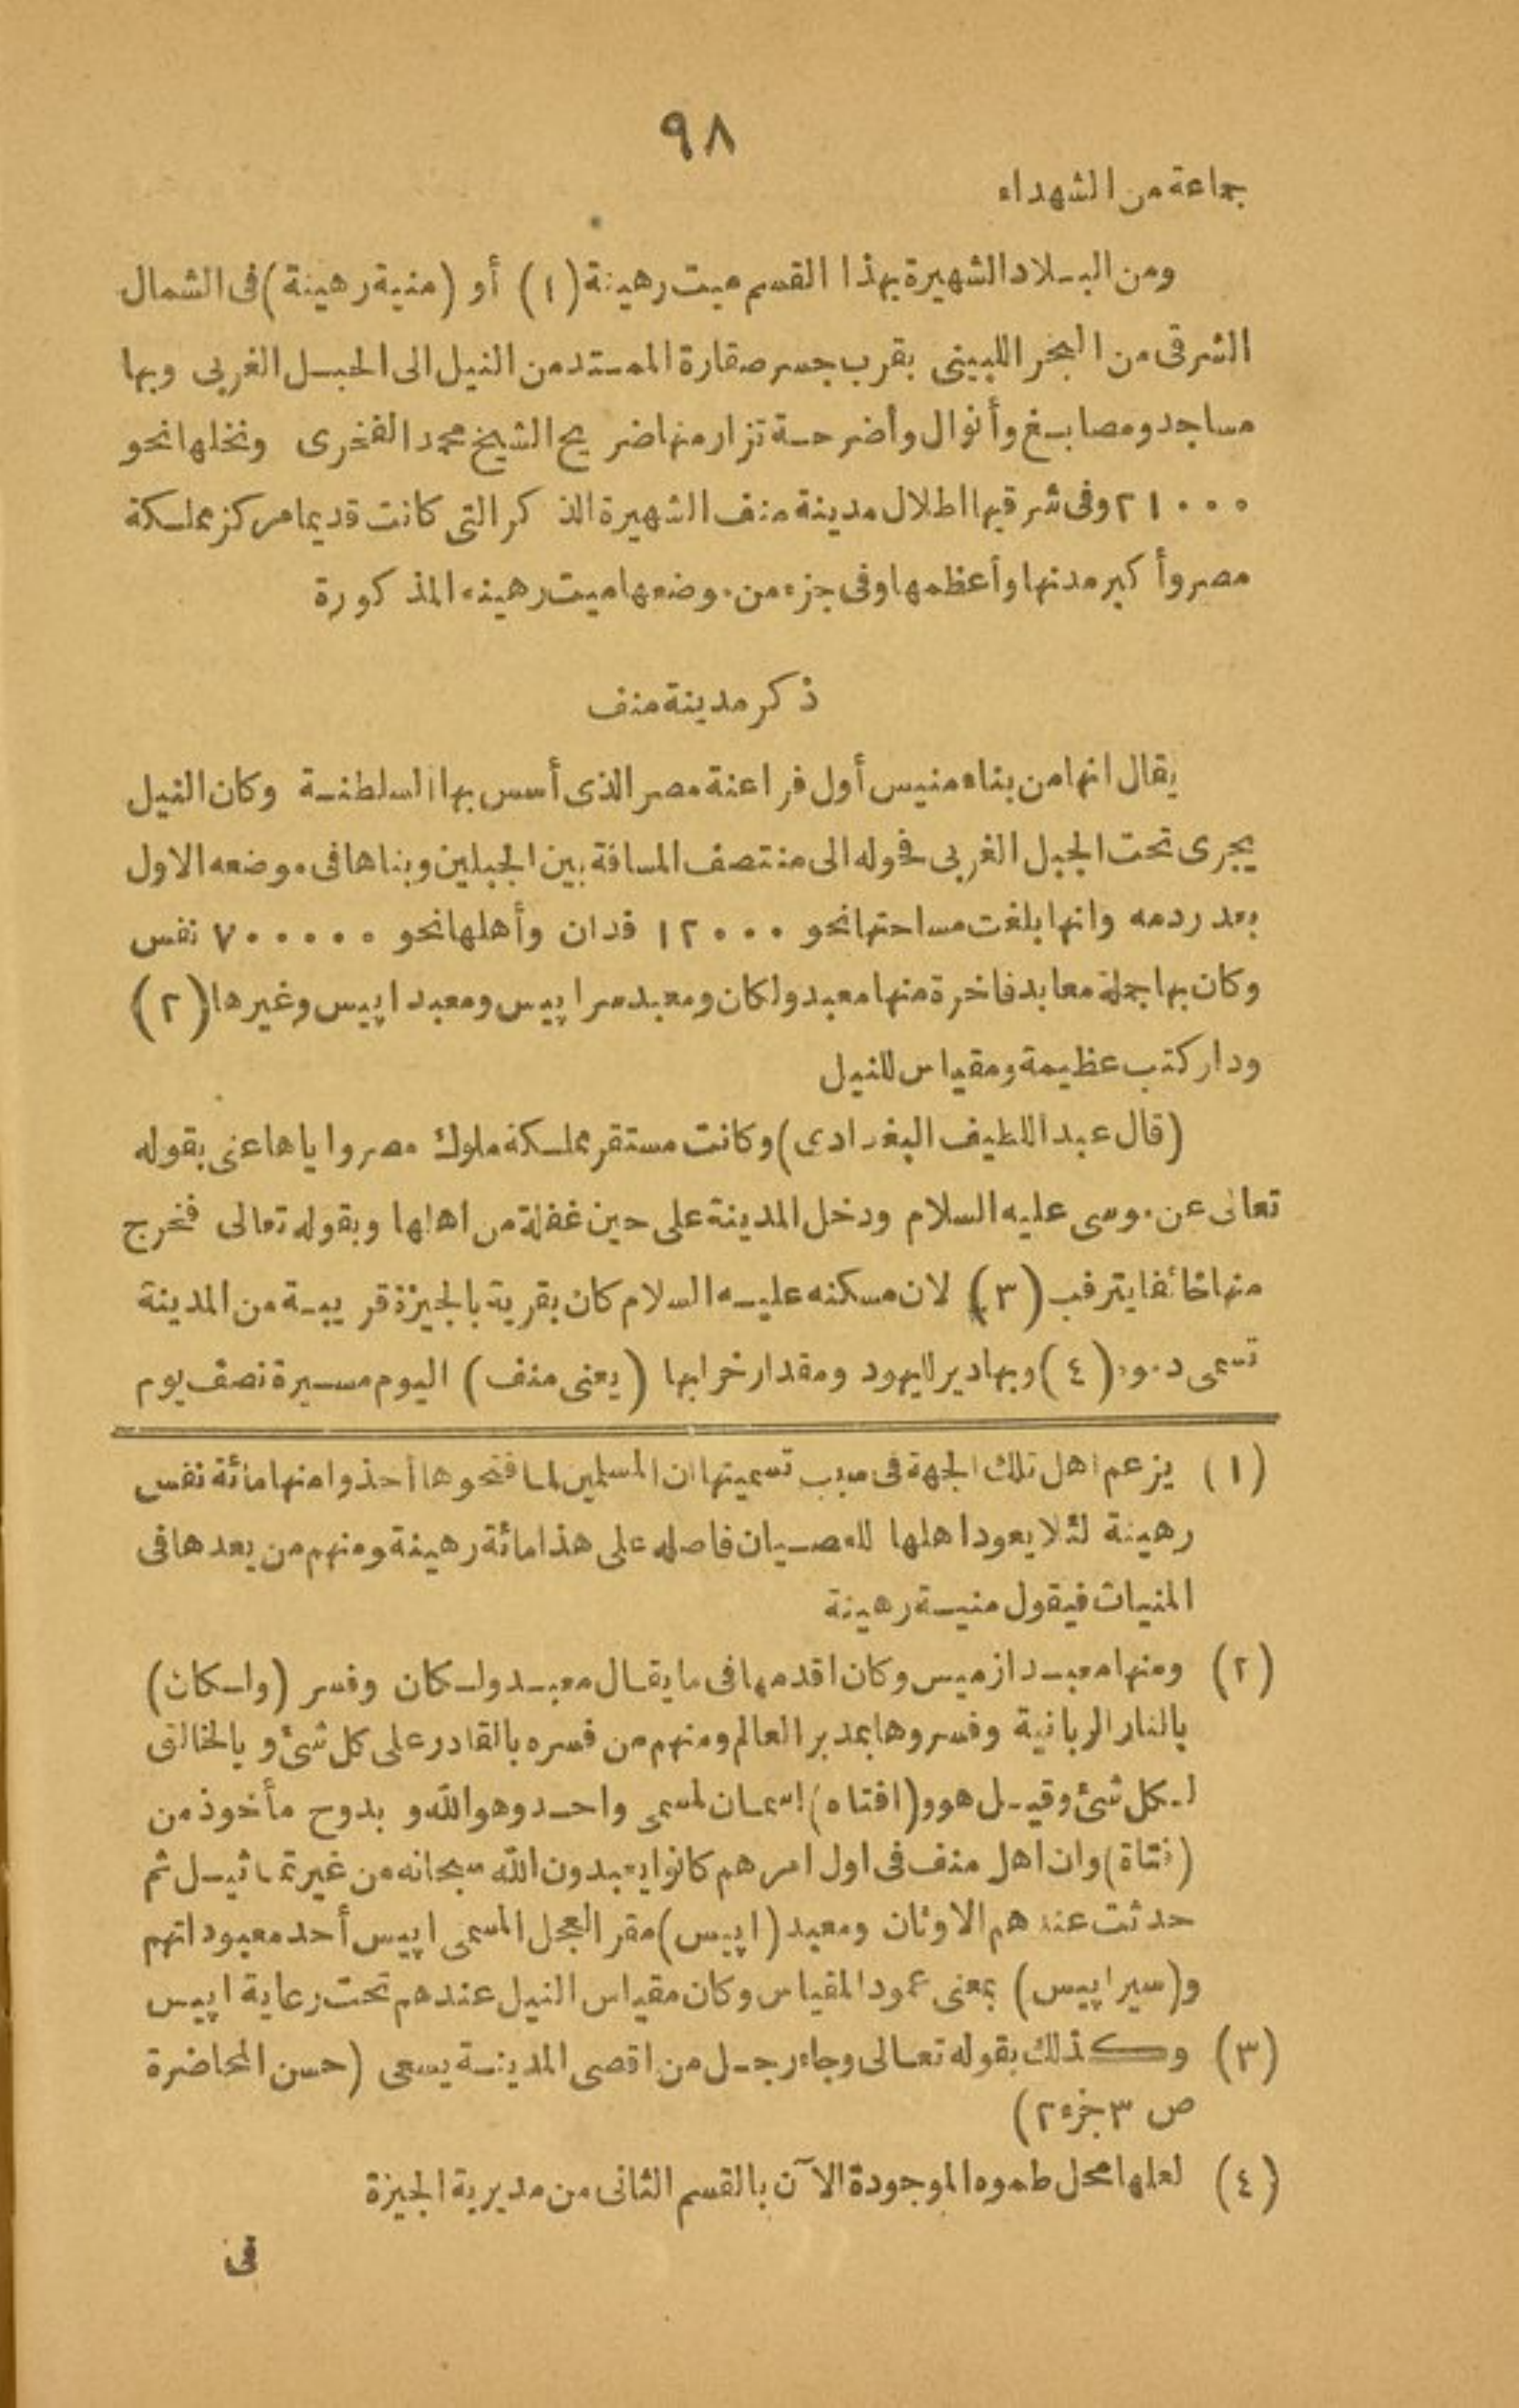 ٩٨
جماعة من الشهداء
ومن البلاد الشهيرة بهذا القسم ميت رهينة (١) أو (منية رهينة) فى الشمال
الشرقى من البحر اللبينى بقرب جسر صقارة الممتد من النيل الى الجبل الغربى وبها
مساجد ومصابغ وأنوال وأضرحة تزار منها ضريح الشيخ محمد الفخرى ونخلها نحو
٢١٠٠٠ وفى شرقيها اطلال مدينة منف الشهيرة الذكر التى كانت قديما مركز مملكة
مصر وأكبر مدنها وأعظمها وفى جزء من موضعها ميت رهينه المذكورة
ذكر مدينة منف
يقال انها من بناء منيس أول فراعنة مصر الذى أسس بها السلطنة وكان النيل
يجرى تحت الجبل الغربى فحوله الى منتصف المسافة بين الجبلين وبناها فى موضعه الاول
بعد ردمه وانها بلغت مساحتها نحو ١٢٠٠٠ فدان وأهلها نحو ٧٠٠٠٠٠ نفس
وكان بها جملة معابد فاخرة منها معبد ولكان ومعبد سراپيس ومعبد اپيس وغيرها (٢)
ودار كتب عظيمة ومقياس للنيل
(قال عبد اللطيف البغدادى) وكانت مستقر مملكة ملوك مصر واياها عنى بقوله
تعالى عن موسى عليه السلام ودخل المدينة على حين غفلة من اهلها وبقوله تعالى فخرج
منها خائفا يترقب (٣) لان مسكنه عليه السلام كان بقرية بالجيزة قريبة من المدينة
تسمى دموه (٤) وبها دير لليهود ومقدار خرابها (يعنى منف) اليوم مسيرة نصف يوم
(١) يزعم اهل تلك الجهة فى سبب تسميتها ان المسلمين لما فتحوها أخذوا منها مائة نفس
رهينة لئلا يعود اهلها للعصيان فاصله على هذا مائة رهينة ومنهم من يعدها فى
المنيات فيقول منية رهينة
(٢) ومنها معبد ازميس وكان اقدمها فى ما يقال معبد ولكان وفسر (ولكان)
بالنار الربانية وفسروها بمدبر العالم ومنهم من فسره بالقادر على كل شئ و بالخالق
لكل شئ وقيل هو و(افتاه) اسمان لمسمى واحد وهو الله و بدوح مأخوذ من
(فتاة) وان اهل منف فى اول امرهم كانوا يعبدون الله سبحانه من غير تماثيل ثم
حدثت عندهم الاوثان ومعبد (اپيس) مقر العجل المسمى اپيس أحد معبوداتهم
و(سيراپيس) بمعنى عمود المقياس وكان مقياس النيل عندهم تحت رعاية اپيس
(٣) وكذلك بقوله تعالى وجاء رجل من اقصى المدينة يسعى (حسن المحاضرة
ص ٣ جزء ٢)
(٤) لعلها محل طموه الموجودة الآن بالقسم الثانى من مديرية الجيزة
فى